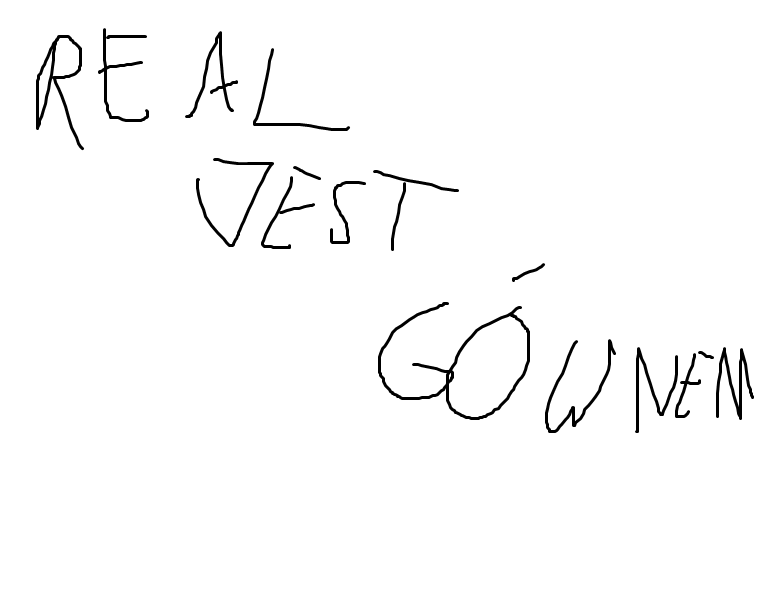 REAL
JEST
GÓWNEM